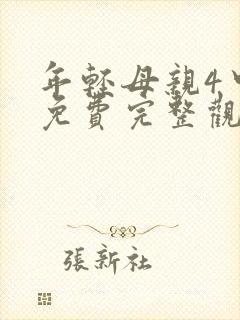 年輕母親4中
免費完整觀
張新社